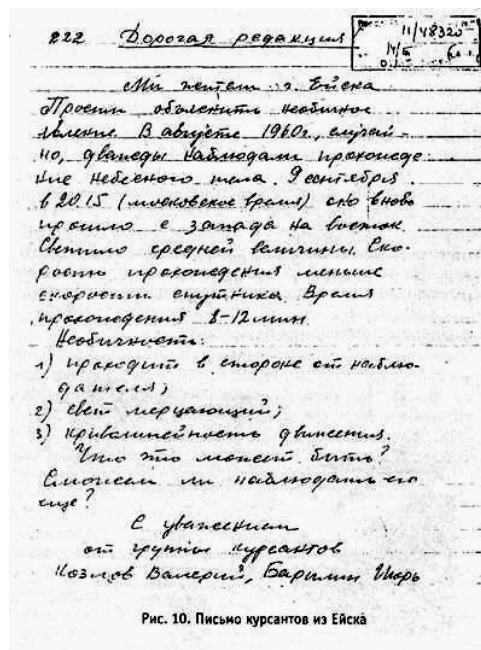 222 Дорогая редакция
11/48320
14/5
Мы жители г. Ейска
Просим объяснить необычное
явление В августе 1960г., случай-
но, дважды наблюдали прохожде-
ние небесного тела. 9 сентября
в 20.15 (московское время) оно вновь
прошло с запада на восток.
Светило средней величины. Ско-
рость прохождения меньше
скорости спутника Время
прохождения 8-12 мин
Необычность:
1) проходит в стороне от наблю-
дателя;
2) свет мерцающий;
3) криволинейность движения.
Что это может быть?
Сможем ли наблюдать его
еще?
С уважением
от группы курсантов
Козлов Валерий, Игорь
Рис. 10. Письмо курсантов из Ейска